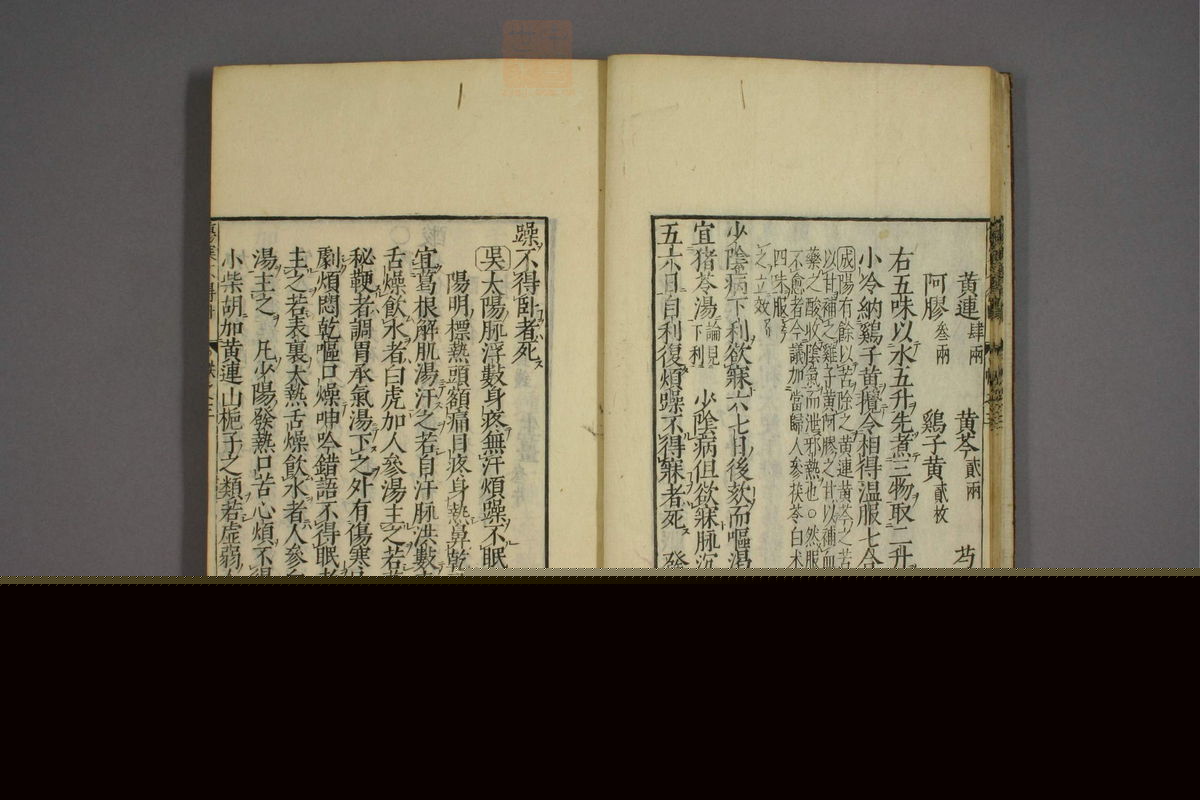 黃連肆兩 黃芩貳兩 芍
阿膠叁兩 鷄子黃貳枚
右五味以水五升先煮三物取二升
小冷納鷄子黃攪令相得温服七合
成陽有餘以苦除之黃連黃芩之苦
以甘補之雞子黃阿膠之甘以補血
藥之酸收陰氣而泄邪熱也○然服
不愈者今議加當歸人參茯苓白术
四味服
之立效
少陰病下利欬寐六七日後欬而嘔渴
宜猪苓湯論見下利 少陰病但欲寐脉沉
五六日自利復煩躁不得寐者死 發
躁不得卧者死
吳太陽脉浮數身疼無汗煩躁不眠
陽明標熱頭額痛目疼身熱鼻乾
宜葛根解肌湯汗之若自汗脉洪數
舌燥飲水者白虎加人參湯主之若
秘鞕者調胃承氣湯下之外有傷寒
劇煩悶乾嘔口燥呻吟錯語不得眠
主之若表裏大熱舌燥飲水者人參
湯主之 凡少陽發熱口苦心煩不得
小柴胡加黃連山梔子之類若虛弱